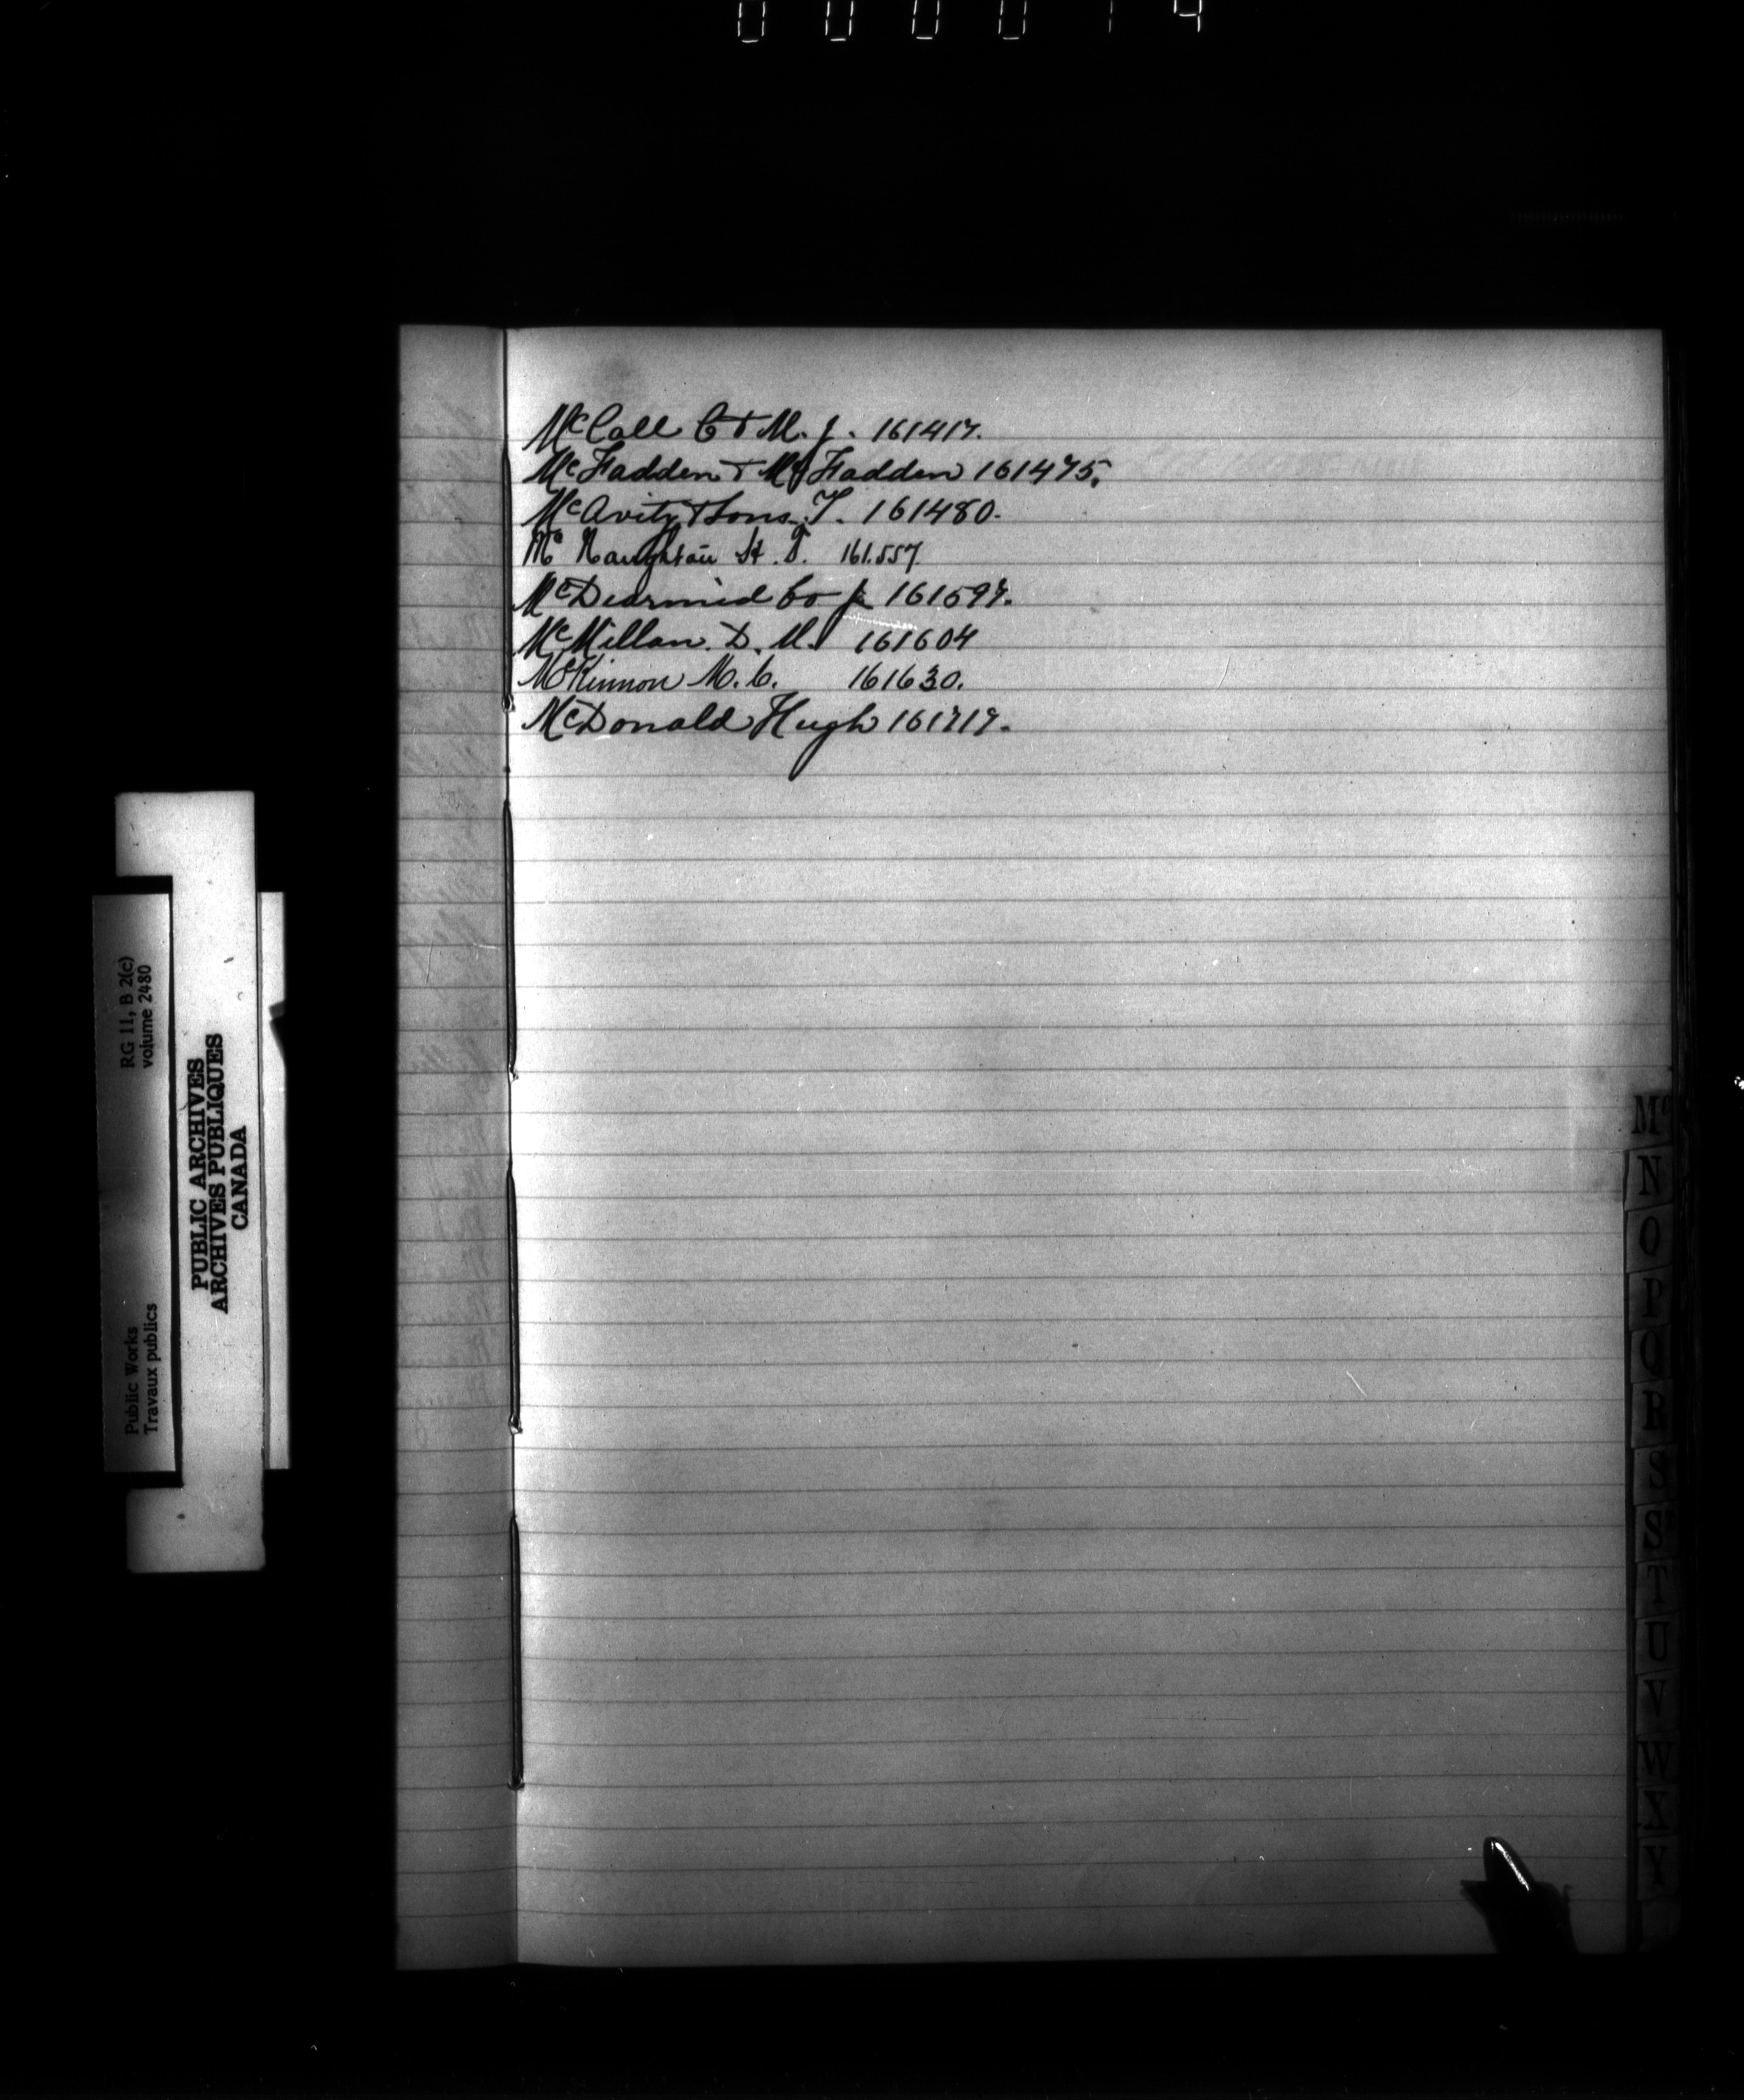 000014
McCall C & M. J. 161417.
McFadden & McFadden 161475.
McAvity & Sons. T. 161480.
Mc Naughton H. T. 161.557.
McDearmid Co 161597.
McMillan. D. M. 161604
McKinnon M. C. 161630.
McDonald Hugh 161717.
RG 11, B 2(c)
volume 2480
Public Works
Travaux publics
PUBLIC ARCHIVES
ARCHIVES PUBLIQUES
CANADA
Mc
N
O
P
Q
R
S
T
U
V
W
X
Y